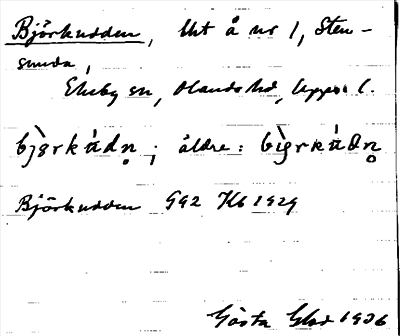 Björkudden, Utt å nr 1, Sten-
sunda,
Ekeby sn, Olands hd, Upps. l.
bjὶərkúdṇ ; äldre : bὶgrkúdṇ
Björkudden G92 Hb 1929
Gösta 1936